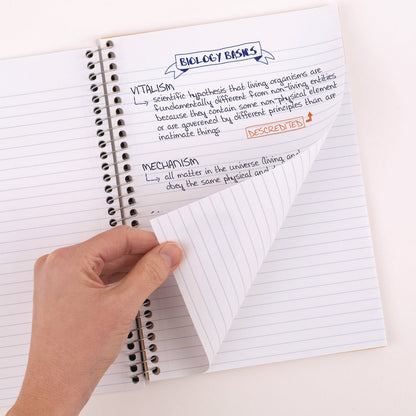 BIOLOGY BASICS
VITALISM
scientific hypothesis that living organisms are
fundamentally different from non-living entities
because they contain some non physical element
or are goverened by different principles than are
inatimate things. DESCREDITED
MECHANISM
all matter in the universe (living and
obey the same physical and